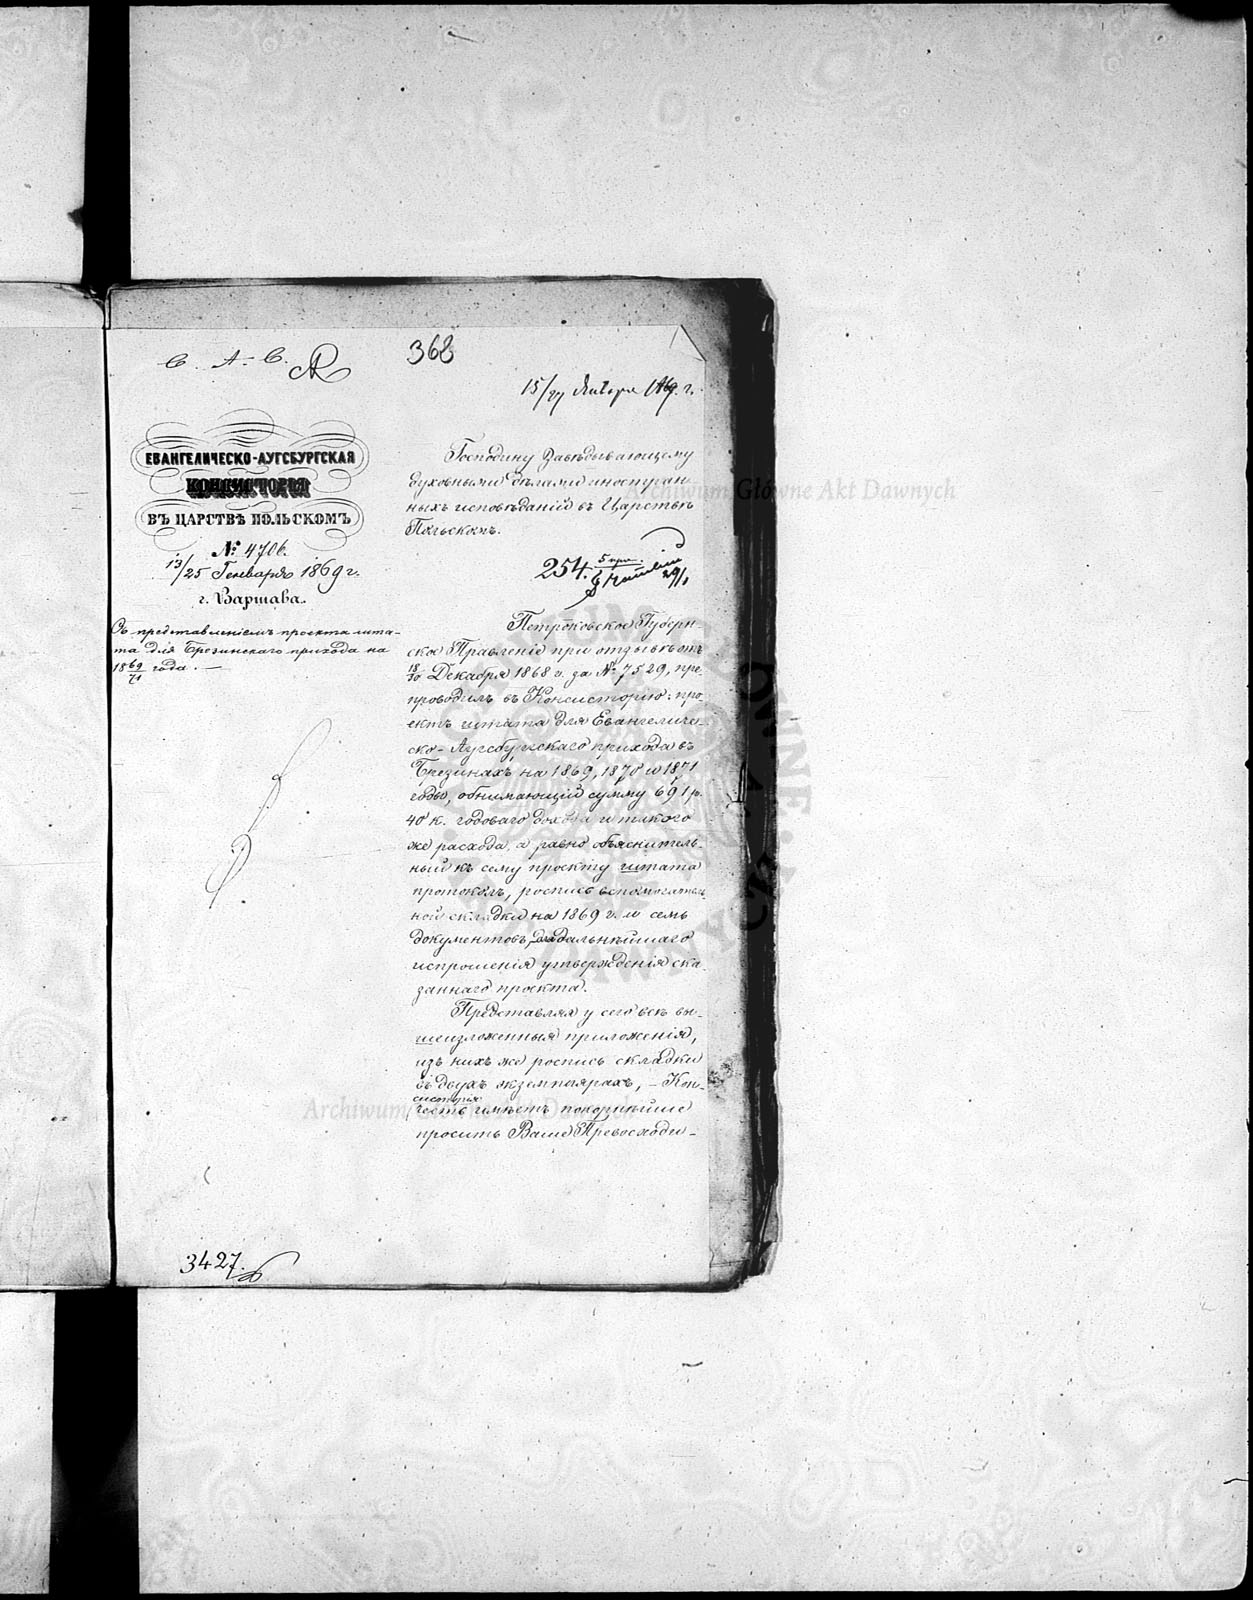 С. А. С.
368
15/27 Января 1869 г.
ЕВАНГЕЛИЧЕСКО-АУГСБУРГСКАЯ
КОНСИСТОРІЯ
ВЪ ЦАРСТВѢ ПОЛЬСКОМЪ
№ 4706.
13/25 Генваря 1869 г.
г. Варшава.
Съ представленіемъ проекта шта-
та для Брезинскаго прихода на
18 69/71 года. —
Господину Завѣдывающему
духовными дѣлами иностран-
ныхъ исповѣданій въ Царствѣ
Польскомъ.
254.
29/1
Петроковское Губерн-
ское Правленіе при отзывѣ отъ
18/30 Декабря 1868 г. за № 7529, пре-
проводилъ въ Консисторію: про-
ектъ штата для Евангеличе-
ско-Аугсбургскаго прихода въ
Брезинахъ на 1869, 1870 и 1871
годы, обнимающій сумму 691 р.
40 к. годоваго дохода и такого
же расхода, а равно объяснитель-
ный къ сему проекту штата
протоколъ, роспись вспомогатель-
ной складки на 1869 г. и семь
документовъ, для дальнѣйшаго
испрошенія утвержденія ска-
заннаго проекта.
Представляя у сего всѣ вы-
шеизложенныя приложенія,
изъ нихъ же роспись складки
въ двухъ экземплярахъ, — Кон-
систорія
честь имѣетъ покорнѣйше
просить Ваше Превосходи-
3427.
Archiwum Główne Akt Dawnych
Archiwum Główne Akt Dawnych